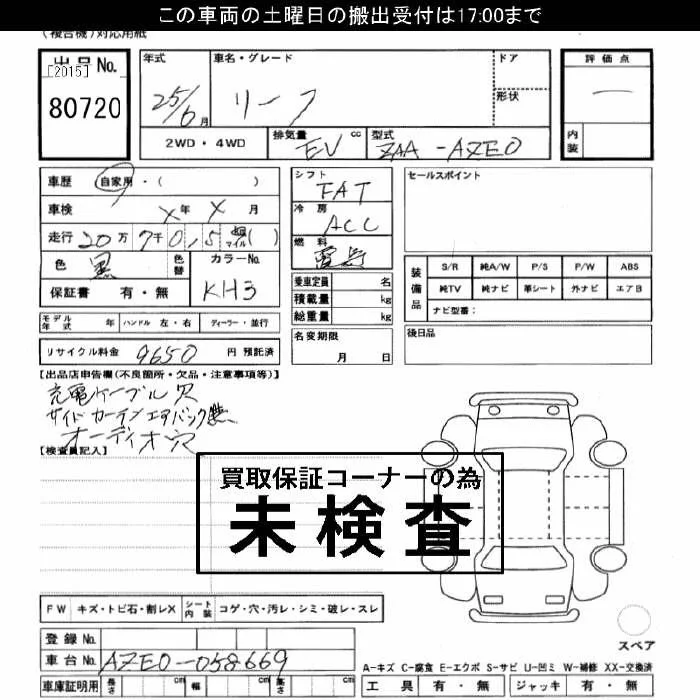 この車両の土曜日の搬出受付は17:00まで
(複合機)対応用紙
出品No.
[2015]
80720
年式
25/6月
車名・グレード
リーフ
ドア
形状
評価点
一
内装
2WD・4WD
排気量 EV cc
型式 ZAA-AZE0
車歴 自家用・( )
車検 X年 X月
走行 20万 7千 0,5 マイル( )
色 黒 色替
カラーNo. KH3
保証書 有・無
シフト FAT
冷房 ACC
燃料 電気
乗車定員 名
積載量 kg
総重量 kg
セールスポイント
装備品
S/R 純A/W P/S P/W ABS
純TV 純ナビ 革シート 外ナビ エアB
ナビ型番:
モデル年式 年 ハンドル 左・右 ディーラー・並行
リサイクル料金 9650 円 預託済
名変期限
月 日
後日品
【出品店申告欄(不良箇所・欠品・注意事項等)】
充電ケーブル欠
サイドカーテンエアバック無
オーディオ欠
【検査員記入】
買取保証コーナーの為
未検査
FW キズ・トビ石・割レX シート内装 コゲ・穴・汚レ・シミ・破レ・スレ
登録No.
車台No. AZE0-058669
車庫証明用 長さ cm 幅 cm 高さ cm
スペア
A-キズ C-腐食 E-エクボ S-サビ U-凹ミ W-補修 XX-交換済
工具 有・無 ジャッキ 有・無